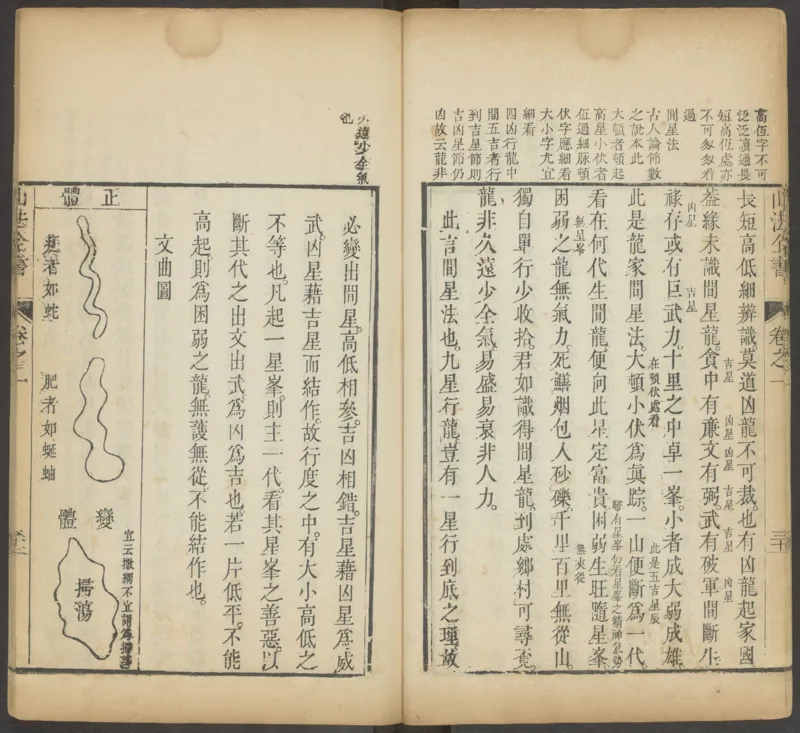 高低字不可
泛泛讀過長
短高低處亦
不可匆匆看
過
間星法
古人論節數
之說本此
大頓者頓起
高星小伏者
低過細脉頓
伏字應細看
大小字尤宜
細看
四凶行龍中
間五吉者行
到吉星節則
吉凶星節仍
凶故云龍非
長短高低細辨識莫道凶龍不可裁也有凶龍起家國
蓋緣未識間星龍貪中有廉文有弼武有破軍間斷生
凶星 吉星
吉星 凶星 凶星 吉星 吉星 凶星
祿存或有巨武力十里之中卓一峯小者成大弱成雄
此是龍家間星法大頓小伏爲眞踪一山便斷爲一代
在頓伏處看
此是五吉星辰
看在何代生間龍便向此星定富貴困弱生旺隨星峯
雖有星峯仍看星峯之精神氣勢
困弱之龍無氣力死鱔烟包入砂礫千里百里無從山
無星峯
無夾從
獨自單行少收拾君如識得間星龍到處鄉村可尋覔
龍非久遠少全氣易盛易衰非人力
此言間星法也九星行龍豈有一星行到底之理故
山法全書
卷之一
久遠少全氣
也
必變出間星高低相參吉凶相錯吉星藉凶星爲威
武凶星藉吉星而結作故行度之中有大小高低之
不等也凡起一星峯則主一代看其星峯之善惡以
斷其代之出文出武爲凶爲吉也若一片低平不能
高起則爲困弱之龍無護無從不能結作也
文曲圖
正體
者如蛇
肥者如蜒蚰
變體
掃蕩
宜云撒網不宜謂爲掃蕩
卷之一